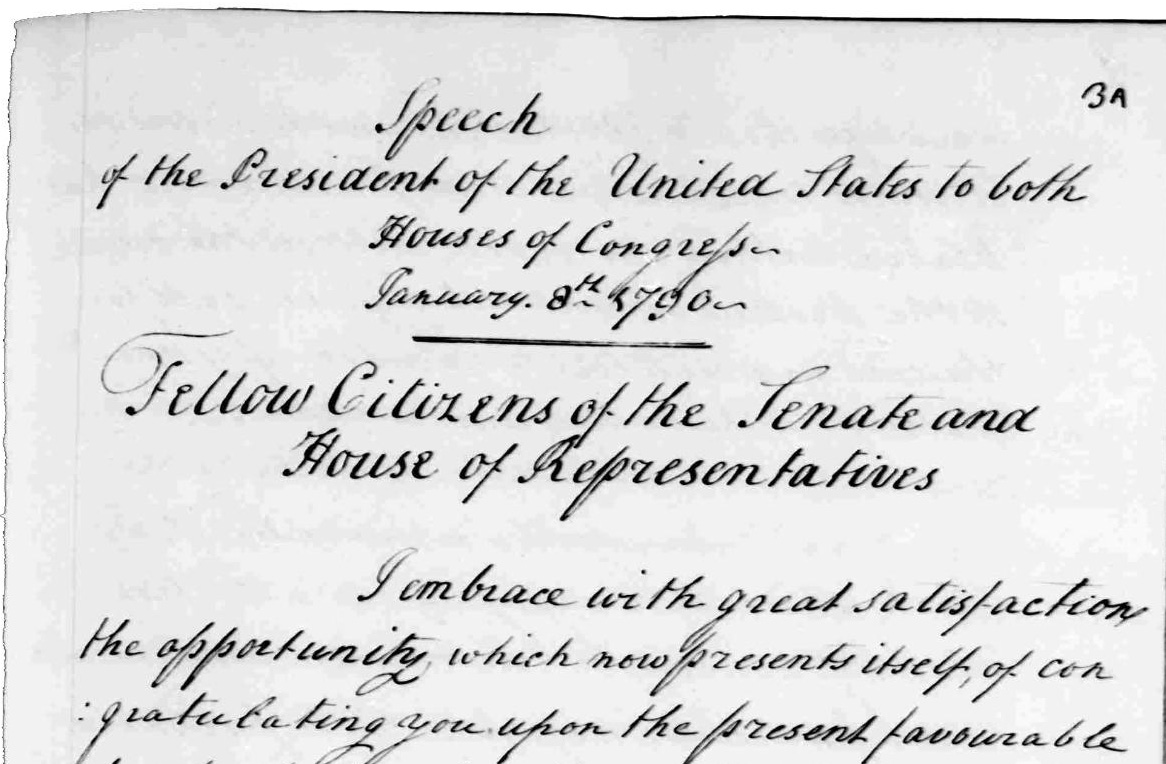 3A
Speech
of the President of the United States to both
Houses of Congreſs
January. 8th 1790
Fellow Citizens of the Senate and
House of Representatives
I embrace with great satisfaction
the opportunity, which now presents itself, of con
:gratulating you upon the present favourable